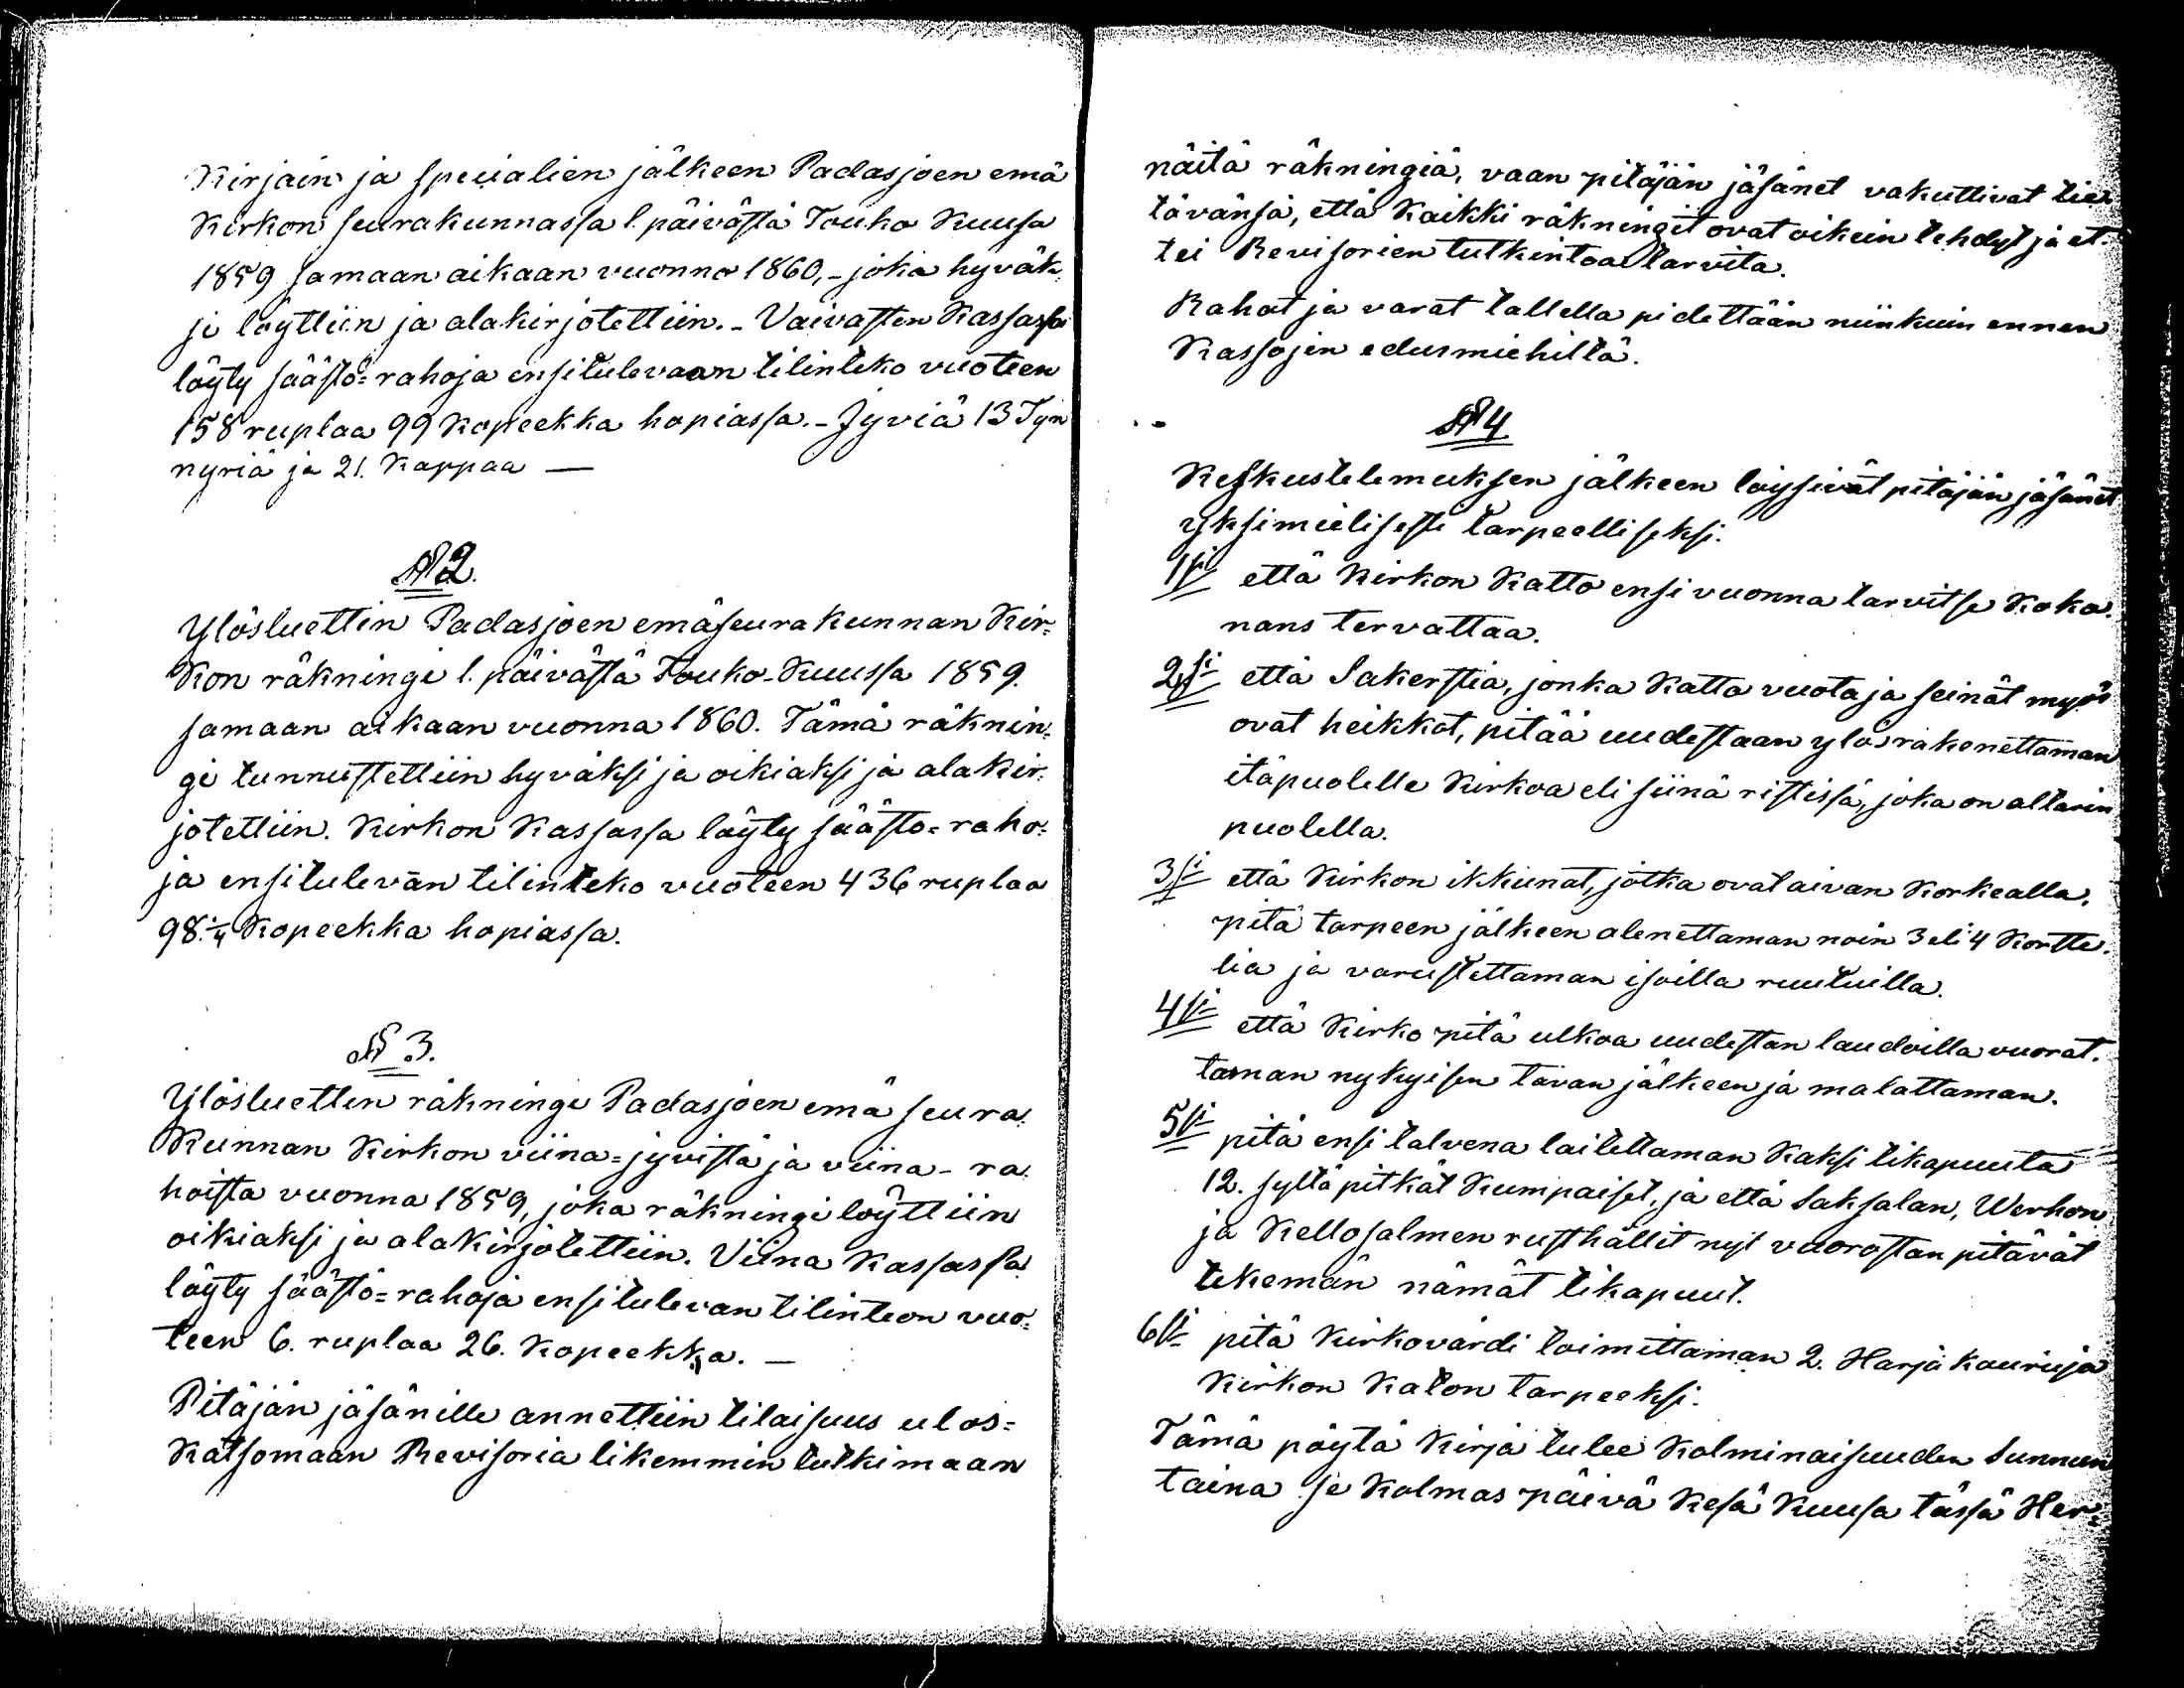 Kirjain ja specialien jälkeen Padasjoen emä
Kirkon seurakunnassa 1. päivästä Touko Kuusa
1859 samaan aikaan vuonna 1860, - joka hyväk-
si löyttiin ja alakirjotettiin. - Vaivasten Kassassa
löyty säästö=rahoja ensitulevaan tilinteko vuoteen
158 ruplaa 99 Kopeekka hopiassa. - Jyviä 13 Tyn
nyriä ja 21. Kappaa —
§ 2.
Ylösluettin Padasjoen emäseurakunnan Kir=
Kon räkningi 1. päivästä Touko-Kuussa 1859.
samaan aikaan vuonna 1860. Tämä räknin=
gi tunnustettiin hyväksi ja oikiaksi ja alakir=
jotettiin. Kirkon Kassassa löyty säästö=raho=
ja ensitulevan tilinteko vuoteen 436 ruplaa
98 1/4 Kopeekka hopiassa.
§ 3.
Ylösluettin räkningi Padasjoen emä seura
Kunnan Kirkon viina=jyvistä ja viina-ra
hoista vuonna 1859, joka räkningi löyttiin
oikiaksi ja alakirjotettiin. Viina Kassassa
löyty säästö=rahoja ensitulevan tilinteon vuo=
teen 6. ruplaa 26. Kopeekka. —
Pitäjän jäsänille annettiin tilaisuus ulos=
Katsomaan Revisoria likemmin tutkimaan
näitä räkningiä, vaan pitäjän jäsänet vakuttivat tie-
tävänsä, että Kaikki räkningit ovat oikein tehdyt ja et-
tei Revisorien tutkintoa tarvita.
Rahat ja varat tallella pidettään niinkuin ennen
Kassojen edusmiehiltä.
§ 4
Keskustelemuksen jälkeen löysivät pitäjän jäsänet
yksimielisesti tarpeelliseksi.
1si että Kirkon Katto ensi vuonna tarvitse Koko
nans tervattaa.
2si että Sakerstia, jonka Katto vuotaja seinät myös
ovat heikkot, pitää uudestaan ylösrakenettaman
itäpuolelle Kirkoa eli siinä ristissä, joka on altarin
puolella.
3si että Kirkon ikkunat, jotka ovat aivan Korkealla,
pitä tarpeen jälkeen alenettaman noin 3 eli 4 Kortte-
lia ja varustettaman isoilla ruutuilla.
4si että Kirko pitä ulkoa uudestan laudoilla vuorat-
taman nykyisen tavan jälkeen ja malattaman.
5si pitä ensi talvena laitettaman Kaksi tikapuuta
12. syltä pitkät Kumpaiset, ja että Saksalan, Werhon
ja Kellosalmen rusthållit nyt vuorostan pitävät
tekemän nämät tikapuut.
6si pitä Kirkovärdi toimittaman 2. Harja kouruja
Kirkon Katon tarpeeksi.
Tämä pöytä Kirja tulee Kolminaisuuden Sunnun
taina se Kolmas päivä Kesä Kuusa tässä Her=